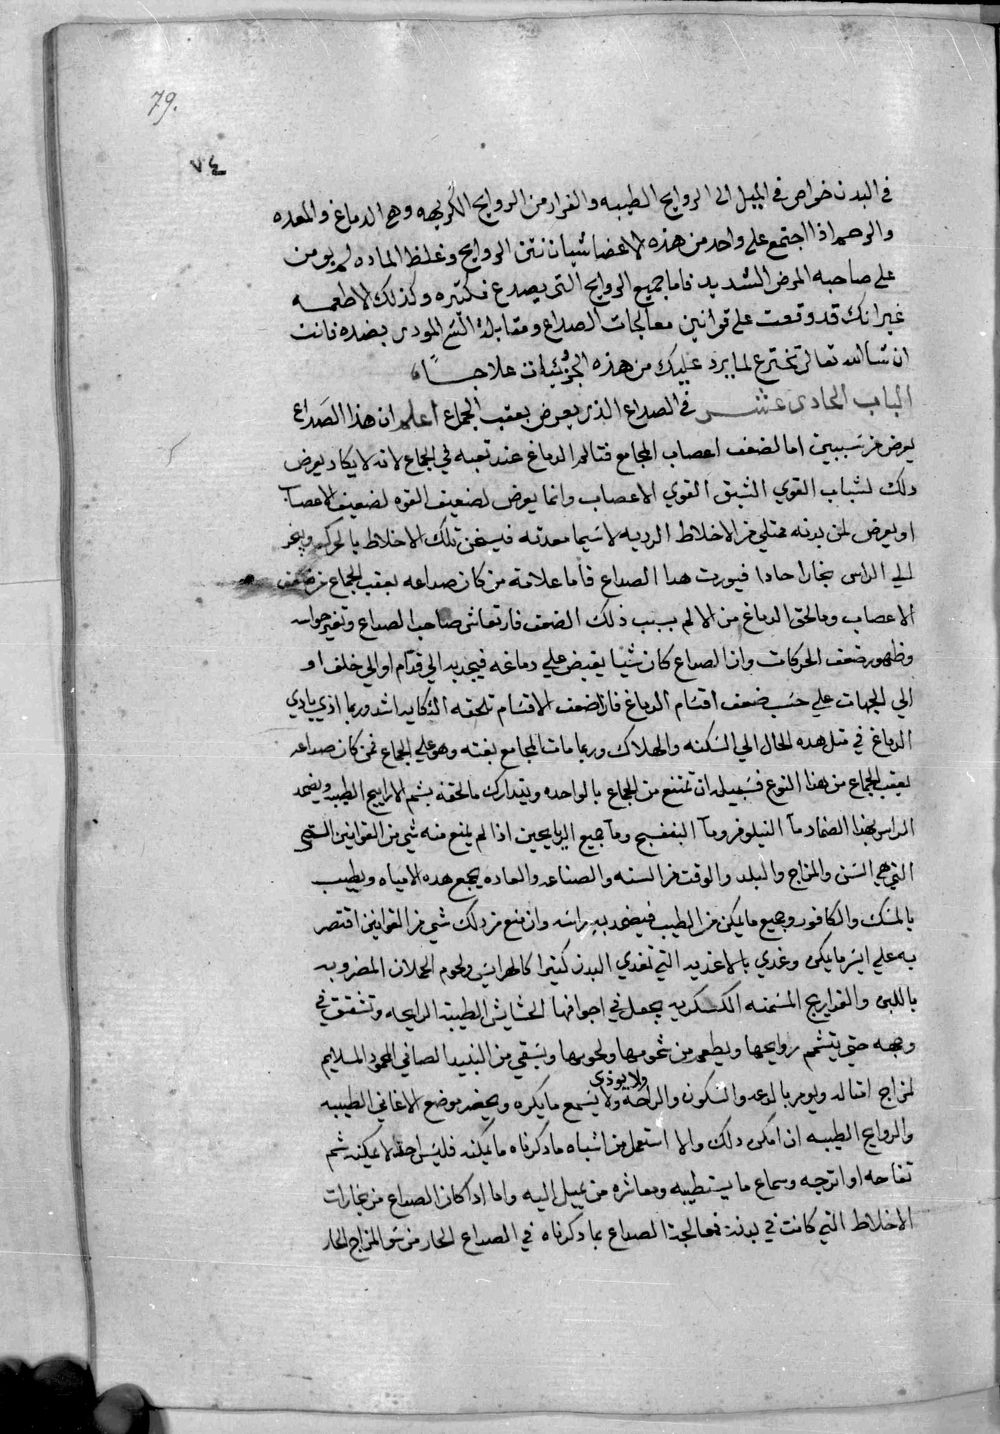 79.
٧٤
في البدن خواص في الميل الى الروايح الطيبه والفرار من الروايح الكريهه وهي الدماغ والمعده
والرحم اذا اجتمع على واحد من هذه الاعضا شيان نتن الروايح وغلظ الماده لم يومن
على صاحبه المرض الشديد فاما جميع الروايح التي يصدع فكثيره وكذلك الاطعمه
غير انك قد وقعت على قوانين معالجات الصداع ومقابلة الشي الموذي بضده فانت
ان شا الله تعالى تخترع لما يرد عليك من هذه الجزئيات علاجا
الباب الحادي عشر في الصداع الذي يعرض بعقب الجماع اعلم ان هذا الصداع
يعرض من سببين اما لضعف اعصاب المجامع فتالم الدماغ عند تعبه في الجماع لانه لا يكاد يعرض
دلك لشباب القوي الشبق القوي الاعصاب وانما يعرض لضعيف القوه لضعيف الاعصاب
او يعرض لمن بدنه ممتلي من الاخلاط الرديه لا سيما معدته فيسخن تلك الاخلاط بالحركه وبخر
الي الراس بخارا حادا فيورث هدا الصداع فاما علامة من كان صداعه بعقب الجماع من ضعف
الاعصاب وما لحق الدماغ من الالم بسبب ذلك الضعف فارتعاش صاحب الصداع وتغير حواسه
وظهور ضعف الحركات وان الصداع كان شيا يقبض على دماغه فيجدبه الي قدام او الي خلف او
الي الجهات علي حسب ضعف اقسام الدماغ فان اضعف الاقسام تلحقه النكايه اشد وربما اذي يادي
الدماغ في مثل هده الحال الي السكته والهلاك وربما مات المجامع بغته وهو علي الجماع فمن كان صداعه
بعقب الجماع من هذا النوع فسبيله ان تمتنع من الجماع بالواحده ويتدارك ما لحقه بشم الاراييح الطيبه ويضمد
الراس بهذا الضماد مآ النيلوفر ومآ البنفسج ومآ جميع الرياحين اذا لم يمنع منه شي من القوانين الستي
التي هي السن والمزاج والبلد والوقت من السنه والصناعه والعاده يجمع هده الامياه ويطيب
بالمسك والكافور وجميع ما يمكن من الطيب فيضمد به راسه وان منع من دلك شي من القوانين اقتصر
به علي ايسر ما يمكن وغدي بالاغديه التي تغدي البدن كثيرا كالهرايس ولحوم الحملان المضروبه
باللبن والفراريج المسمنه الكسكريه يجعل في اجوافها الحشايش الطيبة الرايحه وتشقق في
وجهه حتي يتشمم روايحها ويطعم من شحومها ولحومها ويسقي من النبيد الصافي المحمود الملايم
لمزاج امثاله ويومر بالدعه والسكون والراحه ولا يوذي ولا يسمع ما يكره ويحضر موضع الاغاني الطيبه
والروايح الطيبه ان امكن دلك والا استعمل من اشباه ما دكرناه ما يمكنه فليس احد لا يمكنه شم
تفاحه او اترجه وسماع ما يستطيبه ومعاشره من يميل اليه واما ادا كان الصداع من بخارات
الاخلاط التي كانت في بدنه فعالجة الصداع بما دكرناه في الصداع الحار من سو المزاج الحار